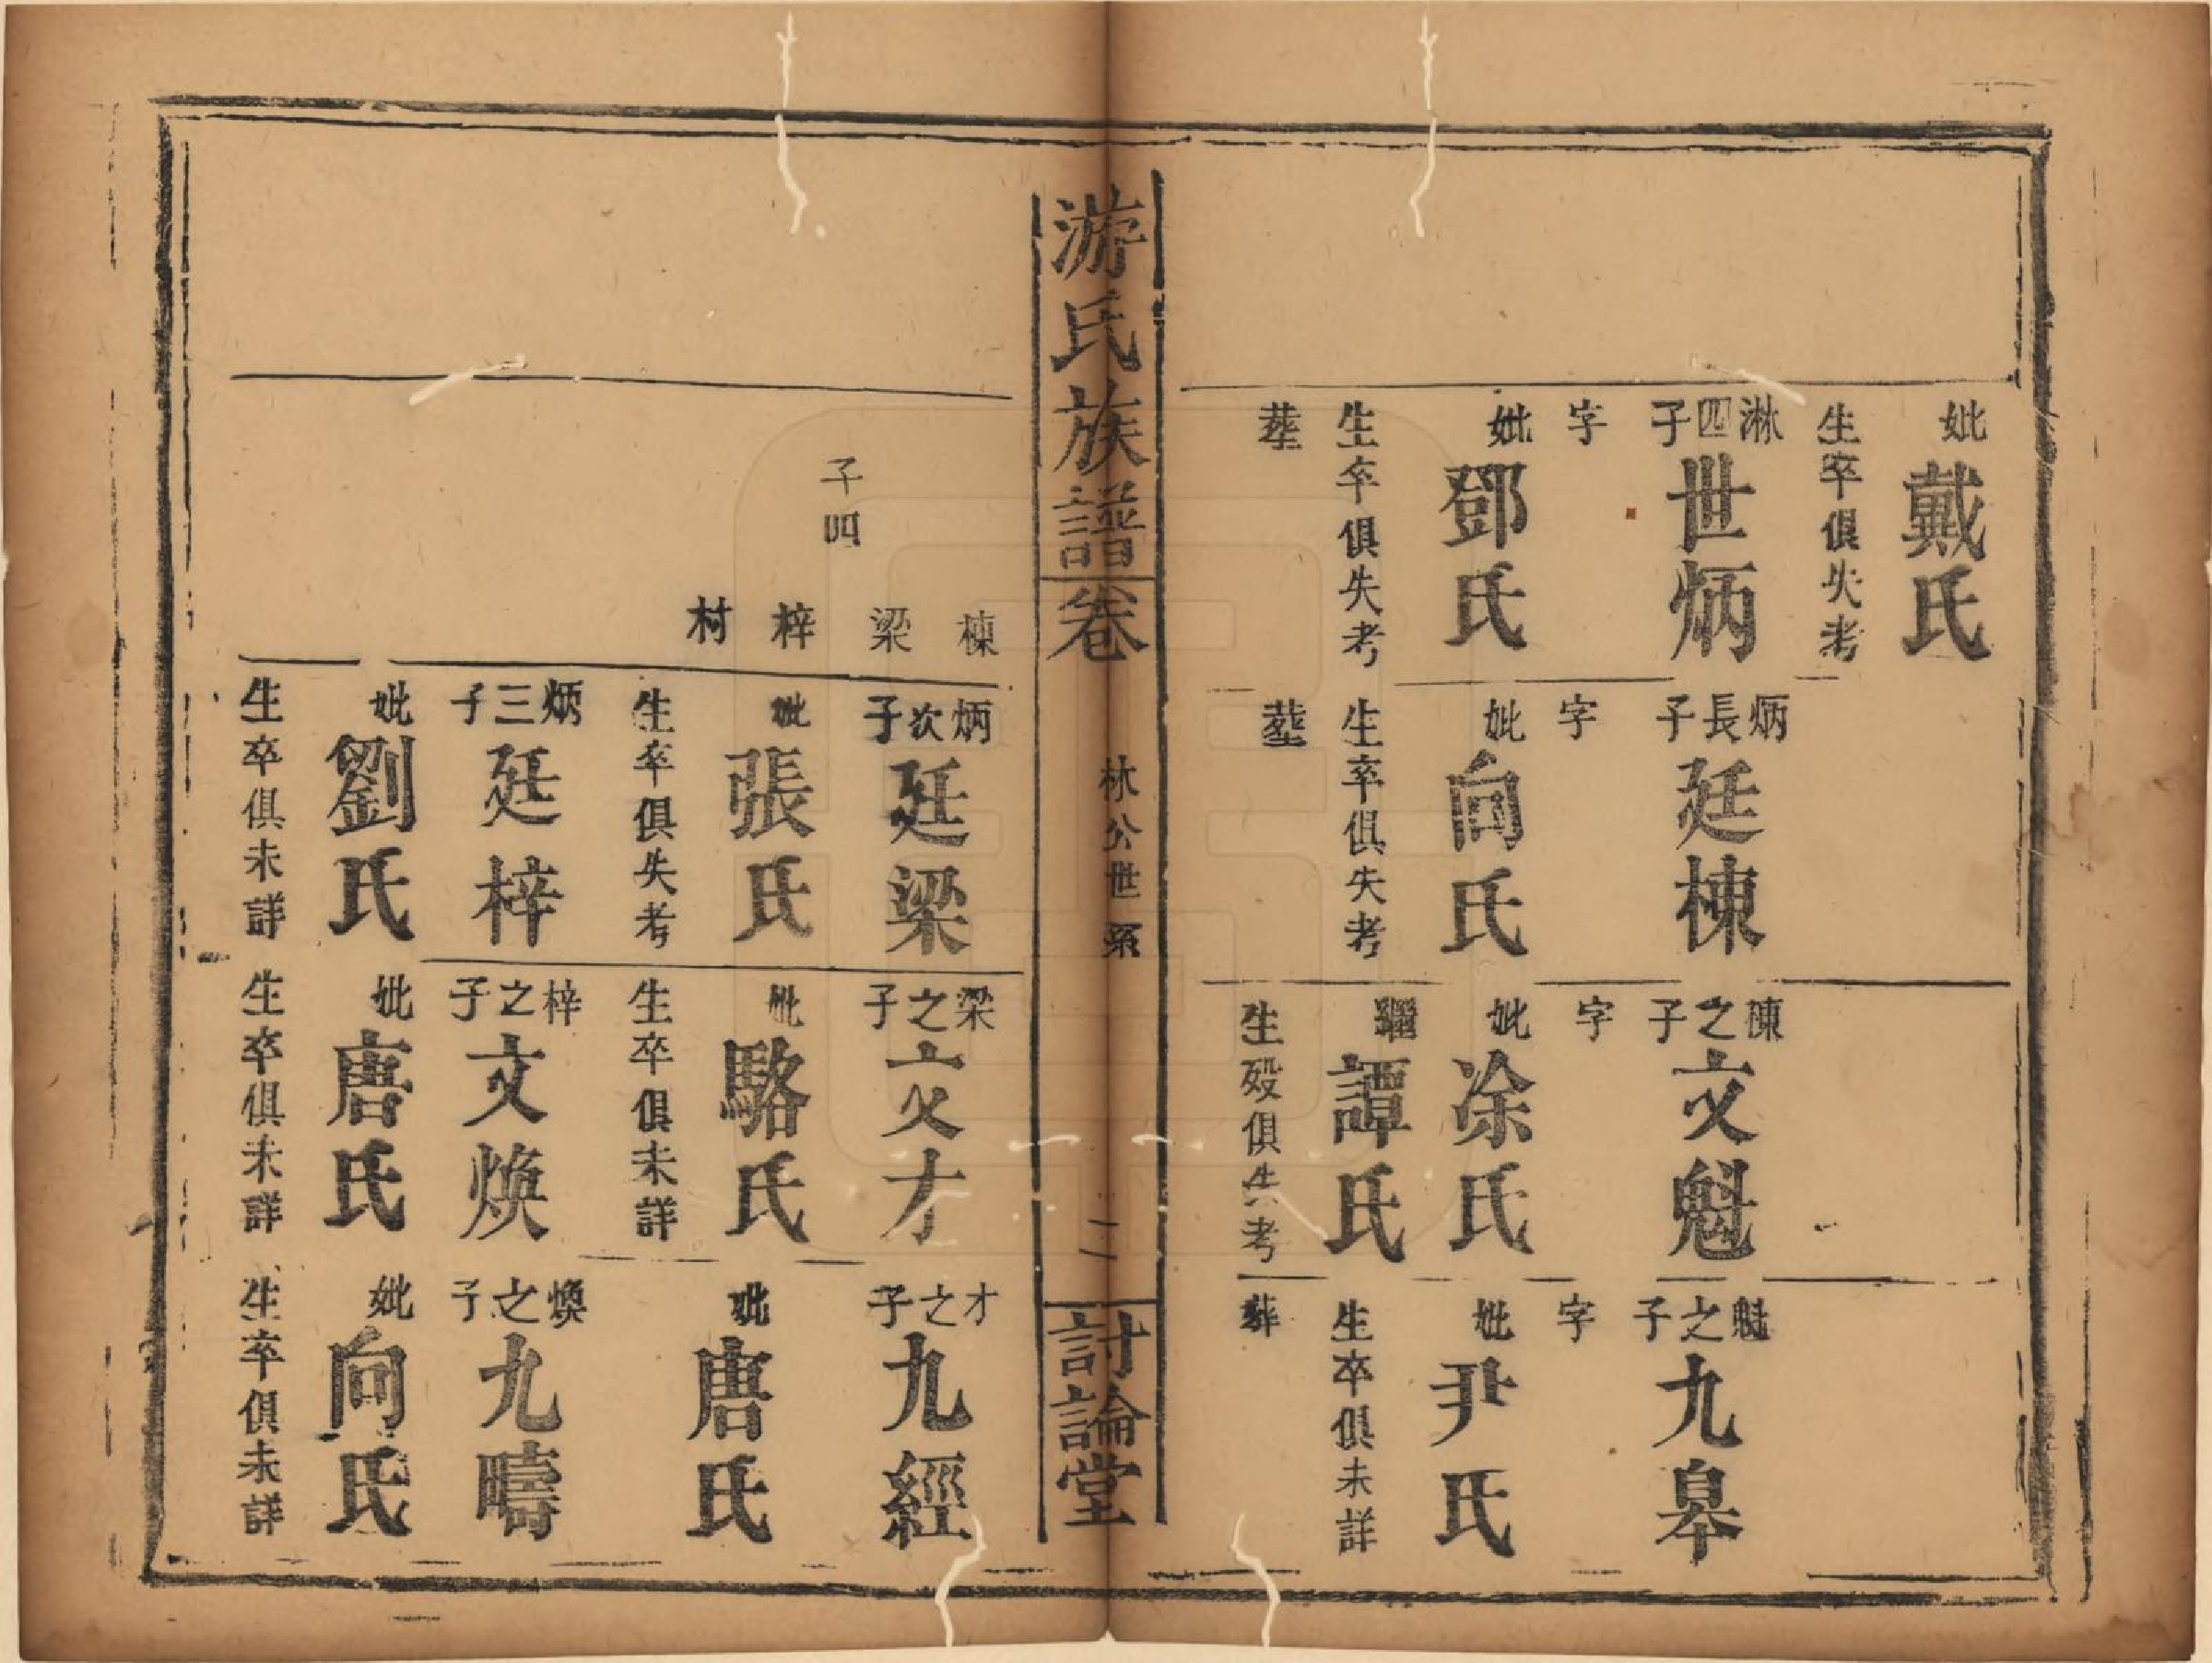 妣戴氏
生卒俱失考
淋四子世炳
字
妣鄧氏
生卒俱失考
葬
炳長子廷棟
字
妣向氏
生卒俱失考
葬
棟之子文魁
字
妣凃氏
繼譚氏
生殁俱失考
魁之子九皋
字
妣尹氏
生卒俱未詳
葬
游氏族譜卷
林公世系
二
討論堂
子四
棟
梁
梓
村
炳次子廷梁
妣張氏
生卒俱失考
炳三子廷梓
妣劉氏
生卒俱未詳
梁之子文才
妣駱氏
生卒俱未詳
梓之子文煥
妣唐氏
生卒俱未詳
才之子九經
妣唐氏
煥之子九疇
妣向氏
生卒俱未詳